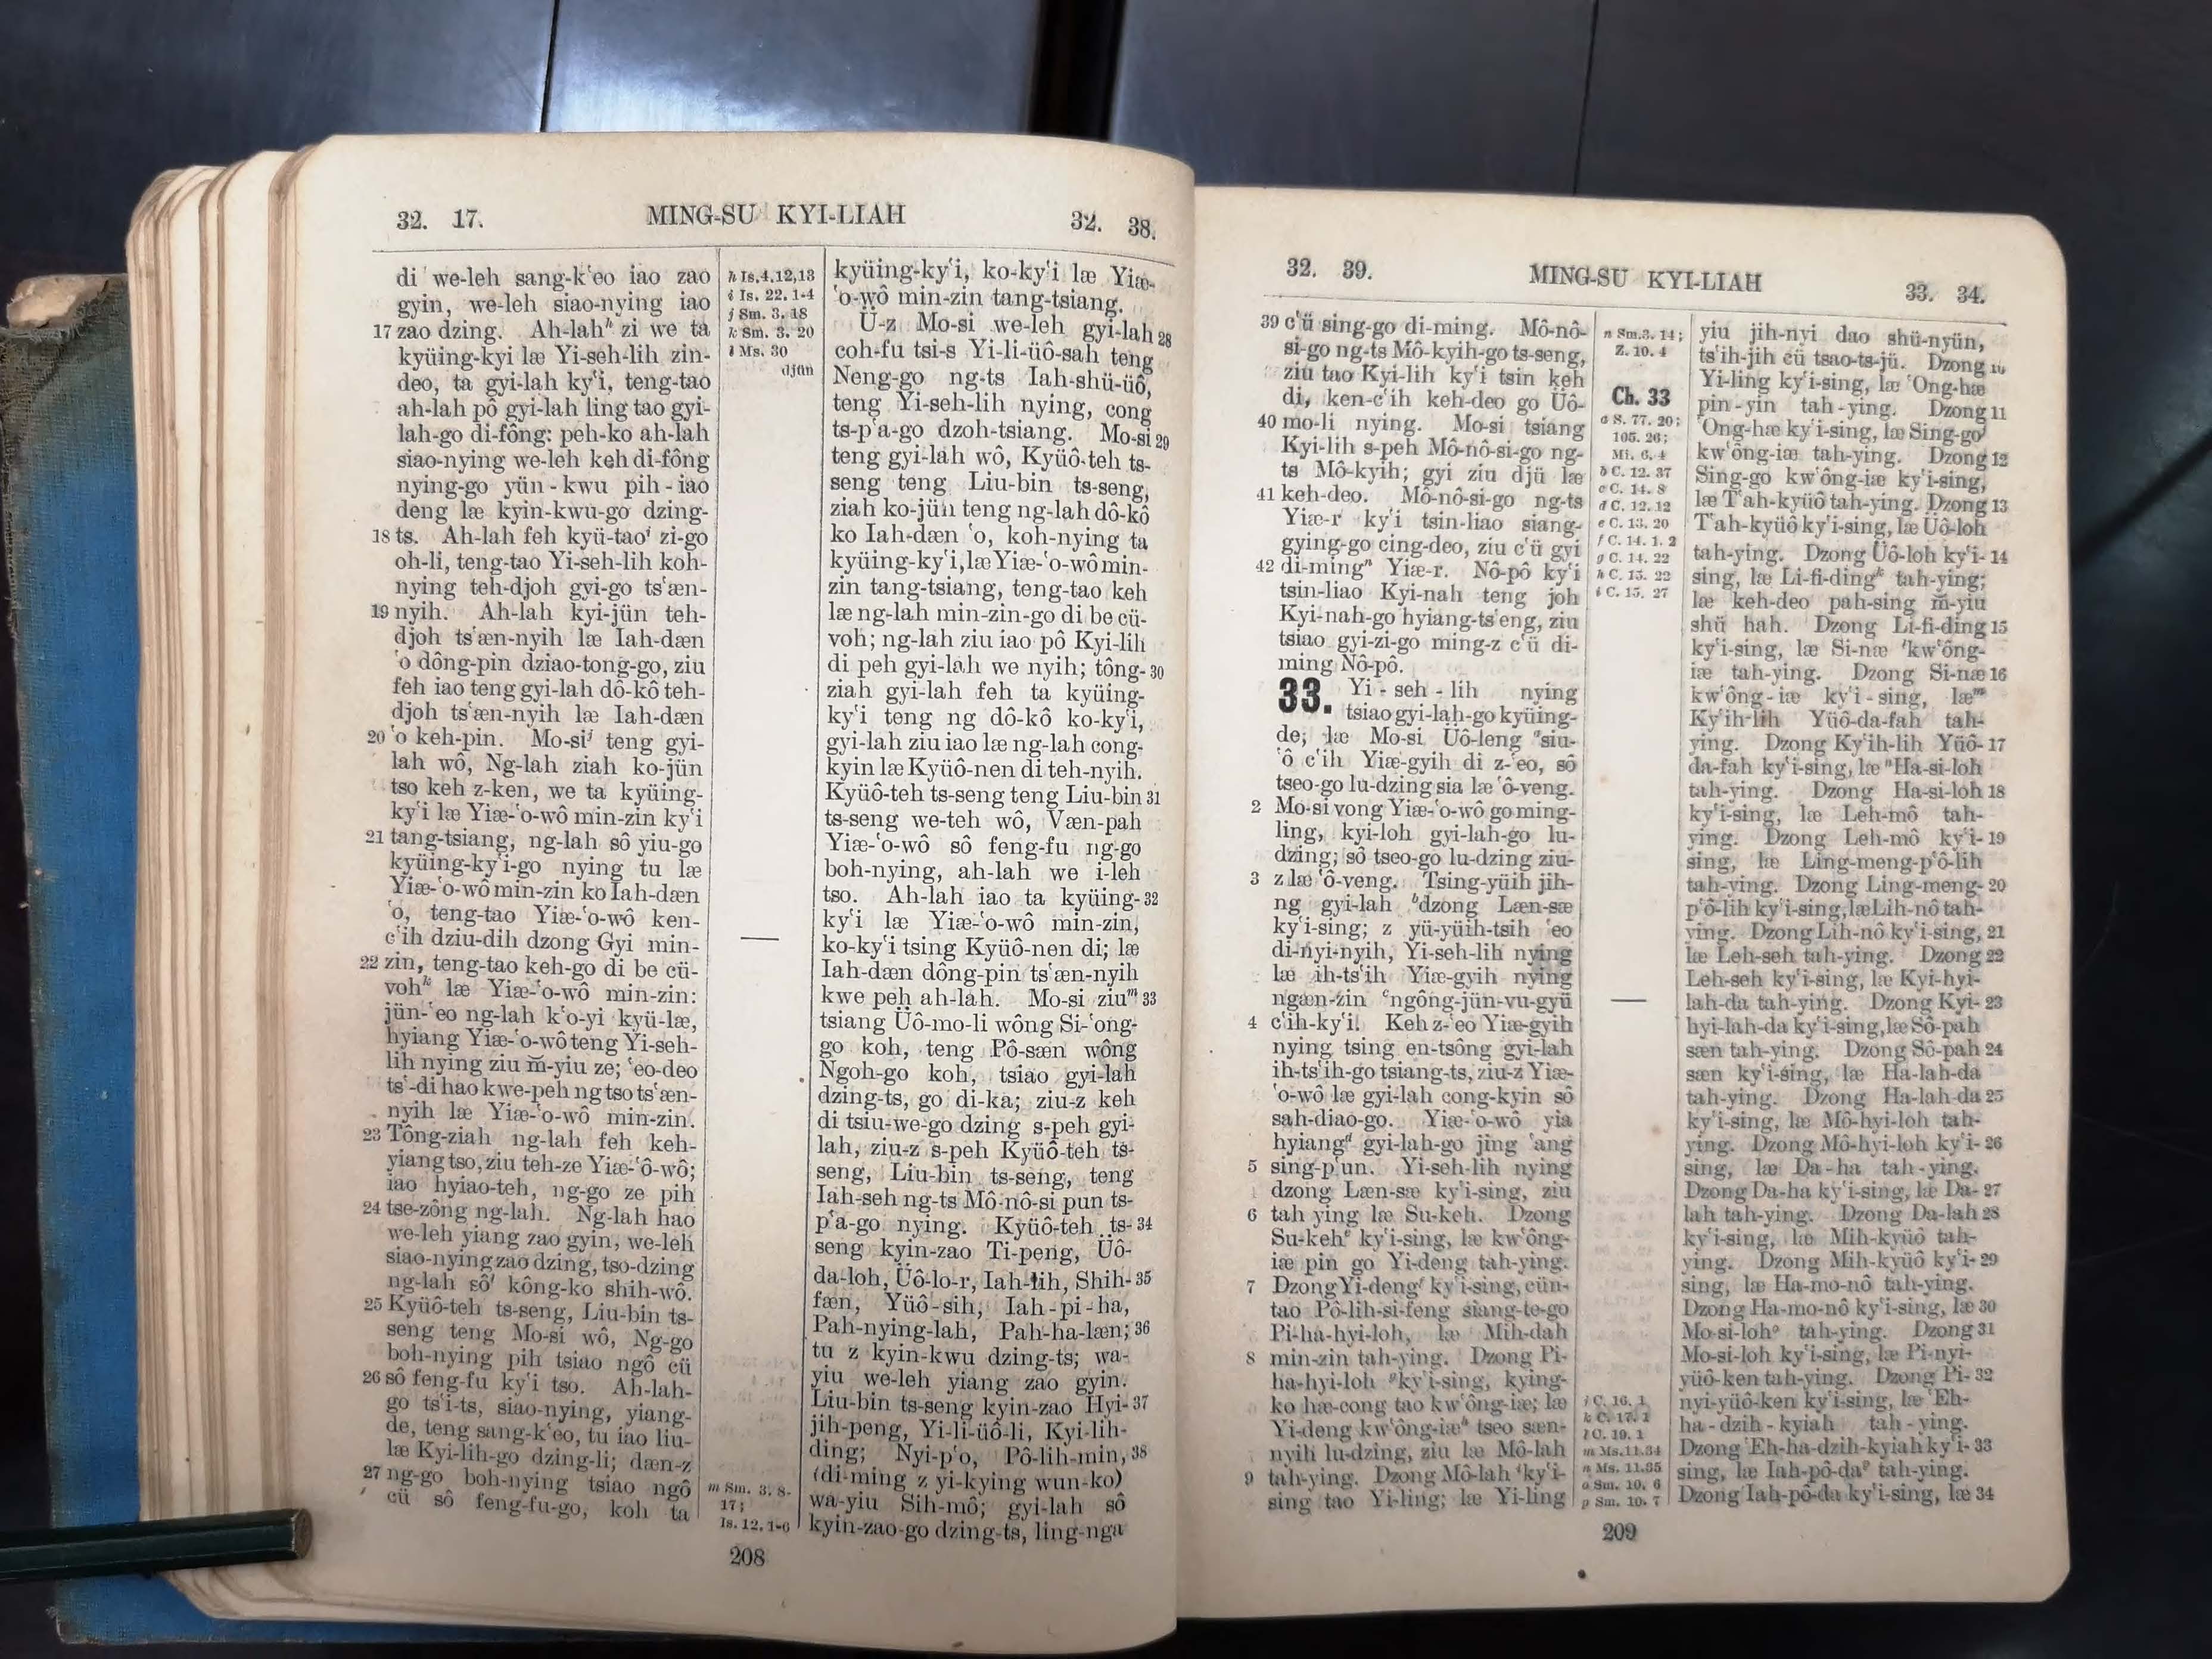 32. 17. MING-SU KYI-LIAH 32. 38.
di we-leh sang-k‘eo iao zao
gyin, we-leh siao-nying iao
17 zao dzing. Ah-lahʰ zi we ta
kyüing-kyi læ Yi-seh-lih zin-
deo, ta gyi-lah ky‘i, teng-tao
ah-lah pô gyi-lah ling tao gyi-
lah-go di-fông: peh-ko ah-lah
siao-nying we-leh keh di-fông
nying-go yün-kwu pih-iao
deng læ kyin-kwu-go dzing-
18 ts. Ah-lah feh kyü-taoⁱ zi-go
oh-li, teng-tao Yi-seh-lih koh-
nying teh-djoh gyi-go ts‘æn-
19 nyih. Ah-lah kyi-jün teh-
djoh ts‘æn-nyih læ Iah-dæn
‘o dông-pin dziao-tong-go, ziu
feh iao teng gyi-lah dô-kô teh-
djoh ts‘æn-nyih læ Iah-dæn
20 ‘o keh-pin. Mo-siʲ teng gyi-
lah wô, Ng-lah ziah ko-jün
tso keh z-ken, we ta kyüing-
ky‘i læ Yiæ-‘o-wô min-zin ky‘i
21 tang-tsiang, ng-lah sô yiu-go
kyüing-ky‘i-go nying tu læ
Yiæ-‘o-wô min-zin ko Iah-dæn
‘o, teng-tao Yiæ-‘o-wô ken-
c‘ih dziu-dih dzong Gyi min-
22 zin, teng-tao keh-go di be cü-
vohᵏ læ Yiæ-‘o-wô min-zin:
jün-‘eo ng-lah k‘o-yi kyü-læ,
hyiang Yiæ-‘o-wô teng Yi-seh-
lih nying ziu m̄-yiu ze; ‘eo-deo
ts‘-di hao kwe-peh ng tso ts‘æn-
nyih læ Yiæ-‘o-wô min-zin.
23 Tông-ziah ng-lah feh keh-
yiang tso, ziu teh-ze Yiæ-‘ô-wô;
iao hyiao-teh, ng-go ze pih
24 tse-zông ng-lah. Ng-lah hao
we-leh yiang zao gyin, we-leh
siao-nying zao dzing, tso-dzing
ng-lah sôˡ kông-ko shih-wô.
25 Kyüô-teh ts-seng, Liu-bin ts-
seng teng Mo-si wô, Ng-go
boh-nying pih tsiao ngô cü
26 sô feng-fu ky‘i tso. Ah-lah-
go ts‘i-ts, siao-nying, yiang-
de, teng sang-k‘eo, tu iao liu-
læ Kyi-lih-go dzing-li; dæn-z
27 ng-go boh-nying tsiao ngô
cü sô feng-fu-go, koh ta
h Is.4,12,13
i Is. 22. 1-4
j Sm. 3. 18
k Sm. 3. 20
l Ms. 30
djün
m Sm. 3. 8-
17;
Is. 12. 1-6
kyüing-ky‘i, ko-ky‘i læ Yiæ-
‘o-wô min-zin tang-tsiang.
Ü-z Mo-si we-leh gyi-lah 28
coh-fu tsi-s Yi-li-üô-sah teng
Neng-go ng-ts Iah-shü-üô,
teng Yi-seh-lih nying, cong
ts-p‘a-go dzoh-tsiang. Mo-si 29
teng gyi-lah wô, Kyüô-teh ts-
seng teng Liu-bin ts-seng,
ziah ko-jün teng ng-lah dô-kô
ko Iah-dæn ‘o, koh-nying ta
kyüing-ky‘i, læ Yiæ-‘o-wô min-
zin tang-tsiang, teng-tao keh
læ ng-lah min-zin-go di be cü-
voh; ng-lah ziu iao pô Kyi-lih
di peh gyi-lah we nyih; tông- 30
ziah gyi-lah feh ta kyüing-
ky‘i teng ng dô-kô ko-ky‘i,
gyi-lah ziu iao læ ng-lah cong-
kyin læ Kyüô-nen di teh-nyih.
Kyüô-teh ts-seng teng Liu-bin 31
ts-seng we-teh wô, Væn-pah
Yiæ-‘o-wô sô feng-fu ng-go
boh-nying, ah-lah we i-leh
tso. Ah-lah iao ta kyüing- 32
ky‘i læ Yiæ-‘o-wô min-zin,
ko-ky‘i tsing Kyüô-nen di; læ
Iah-dæn dông-pin ts‘æn-nyih
kwe peh ah-lah. Mo-si ziuᵐ 33
tsiang Üô-mo-li wông Si-‘ong-
go koh, teng Pô-sæn wông
Ngoh-go koh, tsiao gyi-lah
dzing-ts, go di-ka; ziu-z keh
di tsiu-we-go dzing s-peh gyi-
lah, ziu-z s-peh Kyüô-teh ts-
seng, Liu-bin ts-seng, teng
Iah-seh ng-ts Mô-nô-si pun ts-
p‘a-go nying. Kyüô-teh ts- 34
seng kyin-zao Ti-peng, Üô-
da-loh, Üô-lo-r, Iah-lih, Shih- 35
fæn, Yüô-sih, Iah-pi-ha,
Pah-nying-lah, Pah-ha-læn; 36
tu z kyin-kwu dzing-ts; wa-
yiu we-leh yiang zao gyin.
Liu-bin ts-seng kyin-zao Hyi- 37
jih-peng, Yi-li-üô-li, Kyi-lih-
ding; Nyi-p‘o, Pô-lih-min, 38
(di-ming z yi-kying wun-ko)
wa-yiu Sih-mô; gyi-lah sô
kyin-zao-go dzing-ts, ling-nga
208
32. 39. MING-SU KYI-LIAH 33. 34.
39 c‘ü sing-go di-ming. Mô-nô-
si-go ng-ts Mô-kyih-go ts-seng,
ziu tao Kyi-lih ky‘i tsin keh
di, ken-c‘ih keh-deo go Üô-
40 mo-li nying. Mo-si tsiang
Kyi-lih s-peh Mô-nô-si-go ng-
ts Mô-kyih; gyi ziu djü læ
41 keh-deo. Mô-nô-si-go ng-ts
Yiæ-r ky‘i tsin-liao siang-
gying-go cing-deo, ziu c‘ü gyi
42 di-mingⁿ Yiæ-r. Nô-pô ky‘i
tsin-liao Kyi-nah teng joh
Kyi-nah-go hyiang-ts‘eng, ziu
tsiao gyi-zi-go ming-z c‘ü di-
ming Nô-pô.
33. Yi-seh-lih nying
tsiao gyi-lah-go kyüing-
de; læ Mo-si Üô-leng ᵃsiu-
‘ô c‘ih Yiæ-gyih di z-‘eo, sô
tseo-go lu-dzing sia læ ‘ô-veng.
2 Mo-si vong Yiæ-‘o-wô go ming-
ling, kyi-loh gyi-lah-go lu-
dzing; sô tseo-go lu-dzing ziu-
3 z læ ‘ô-veng. Tsing-yüih jih-
ng gyi-lah ᵇdzong Læn-sæ
ky‘i-sing; z yü-yüih-tsih ‘eo
di-nyi-nyih, Yi-seh-lih nying
læ ih-ts‘ih Yiæ-gyih nying
ngæn-zin ᶜngông-jün-vu-gyü
4 c‘ih-ky‘i. Keh z-‘eo Yiæ-gyih
nying tsing en-tsông gyi-lah
ih-ts‘ih-go tsiang-ts, ziu-z Yiæ-
‘o-wô læ gyi-lah cong-kyin sô
sah-diao-go. Yiæ-‘o-wô yia
hyiangᵈ gyi-lah-go jing ‘ang
5 sing-p‘un. Yi-seh-lih nying
dzong Læn-sæ ky‘i-sing, ziu
6 tah ying læ Su-keh. Dzong
Su-kehᵉ ky‘i-sing, læ kw‘ông-
iæ pin go Yi-deng tah-ying.
7 Dzong Yi-dengᶠ ky‘i-sing, cün-
tao Pô-lih-si-feng siang-te-go
Pi-ha-hyi-loh, læ Mih-dah
8 min-zin tah-ying. Dzong Pi-
ha-hyi-loh ᵍky‘i-sing, kying-
ko hæ-cong tao kw‘ông-iæ; læ
Yi-deng kw‘ông-iæʰ tseo sæn-
nyih lu-dzing, ziu læ Mô-lah
9 tah-ying. Dzong Mô-lah ⁱky‘i-
sing tao Yi-ling; læ Yi-ling
n Sm.3. 14;
Z. 10. 4
Ch. 33
a S. 77. 20;
105. 26;
Mi. 6. 4
b C. 12. 37
c C. 14. 8
d C. 12. 12
e C. 13. 20
f C. 14. 1. 2
g C. 14. 22
h C. 15. 22
i C. 15. 27
j C. 16. 1
k C. 17. 1
l C. 19. 1
m Ms.11.34
n Ms. 11.35
o Sm. 10. 6
p Sm. 10. 7
yiu jih-nyi dao shü-nyün,
ts‘ih-jih cü tsao-ts-jü. Dzong 10
Yi-ling ky‘i-sing, læ ‘Ong-hæ
pin-yin tah-ying. Dzong 11
‘Ong-hæ ky‘i-sing, læ Sing-goʲ
kw‘ông-iæ tah-ying. Dzong 12
Sing-go kw‘ông-iæ ky‘i-sing,
læ T‘ah-kyüô tah-ying. Dzong 13
T‘ah-kyüô ky‘i-sing, læ Üô-loh
tah-ying. Dzong Üô-loh ky‘i- 14
sing, læ Li-fi-dingᵏ tah-ying;
læ keh-deo pah-sing m̄-yiu
shü hah. Dzong Li-fi-ding 15
ky‘i-sing, læ Si-næ ˡkw‘ông-
iæ tah-ying. Dzong Si-næ 16
kw‘ông-iæ ky‘i-sing, læᵐ
Ky‘ih-lih Yüô-da-fah tah-
ying. Dzong Ky‘ih-lih Yüô- 17
da-fah ky‘i-sing, læ ⁿHa-si-loh
tah-ying. Dzong Ha-si-loh 18
ky‘i-sing, læ Leh-mô tah-
ying. Dzong Leh-mô ky‘i- 19
sing, læ Ling-meng-p‘ô-lih
tah-ying. Dzong Ling-meng- 20
p‘ô-lih ky‘i-sing, læ Lih-nô tah-
ying. Dzong Lih-nô ky‘i-sing, 21
læ Leh-seh tah-ying. Dzong 22
Leh-seh ky‘i-sing, læ Kyi-hyi-
lah-da tah-ying. Dzong Kyi- 23
hyi-lah-da ky‘i-sing, læ Sô-pah
sæn tah-ying. Dzong Sô-pah 24
sæn ky‘i-sing, læ Ha-lah-da
tah-ying. Dzong Ha-lah-da 25
ky‘i-sing, læ Mô-hyi-loh tah-
ying. Dzong Mô-hyi-loh ky‘i- 26
sing, læ Da-ha tah-ying.
Dzong Da-ha ky‘i-sing, læ Da- 27
lah tah-ying. Dzong Da-lah 28
ky‘i-sing, læ Mih-kyüô tah-
ying. Dzong Mih-kyüô ky‘i- 29
sing, læ Ha-mo-nô tah-ying.
Dzong Ha-mo-nô ky‘i-sing, læ 30
Mo-si-lohᵒ tah-ying. Dzong 31
Mo-si-loh ky‘i-sing, læ Pi-nyi-
yüô-ken tah-ying. Dzong Pi- 32
nyi-yüô-ken ky‘i-sing, læ ‘Eh-
ha-dzih-kyiah tah-ying.
Dzong ‘Eh-ha-dzih-kyiah ky‘i- 33
sing, læ Iah-pô-daᵖ tah-ying.
Dzong Iah-pô-da ky‘i-sing, læ 34
209